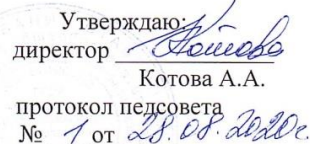 Утверждаю:
директор Котова
Котова А.А.
протокол педсовета
№ 1 от 28.08.2020г.